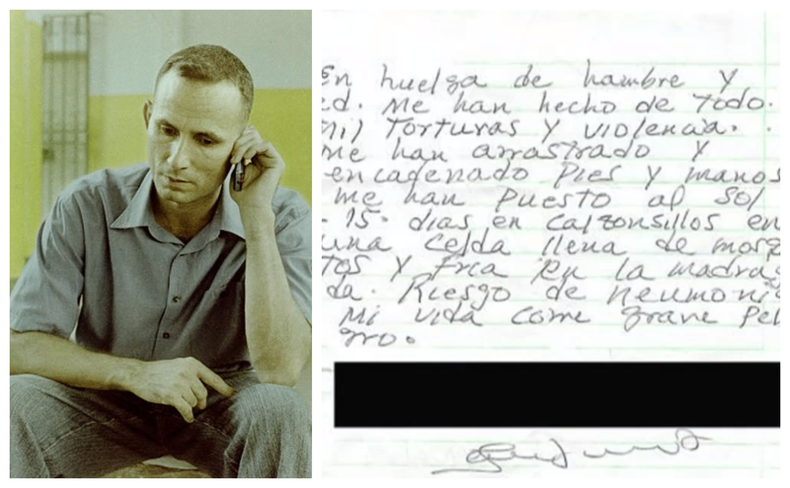 En huelga de hambre y
ed. Me han hecho de todo.
mil Torturas y violencia.
me han arrastrado y
encadenado pies y manos
me han puesto al Sol
15 dias en calzonsillos en
una celda llena de mosq
tos y fria en la madra
da. Riesgo de neumoni
Mi vida corre grave pel
gro.